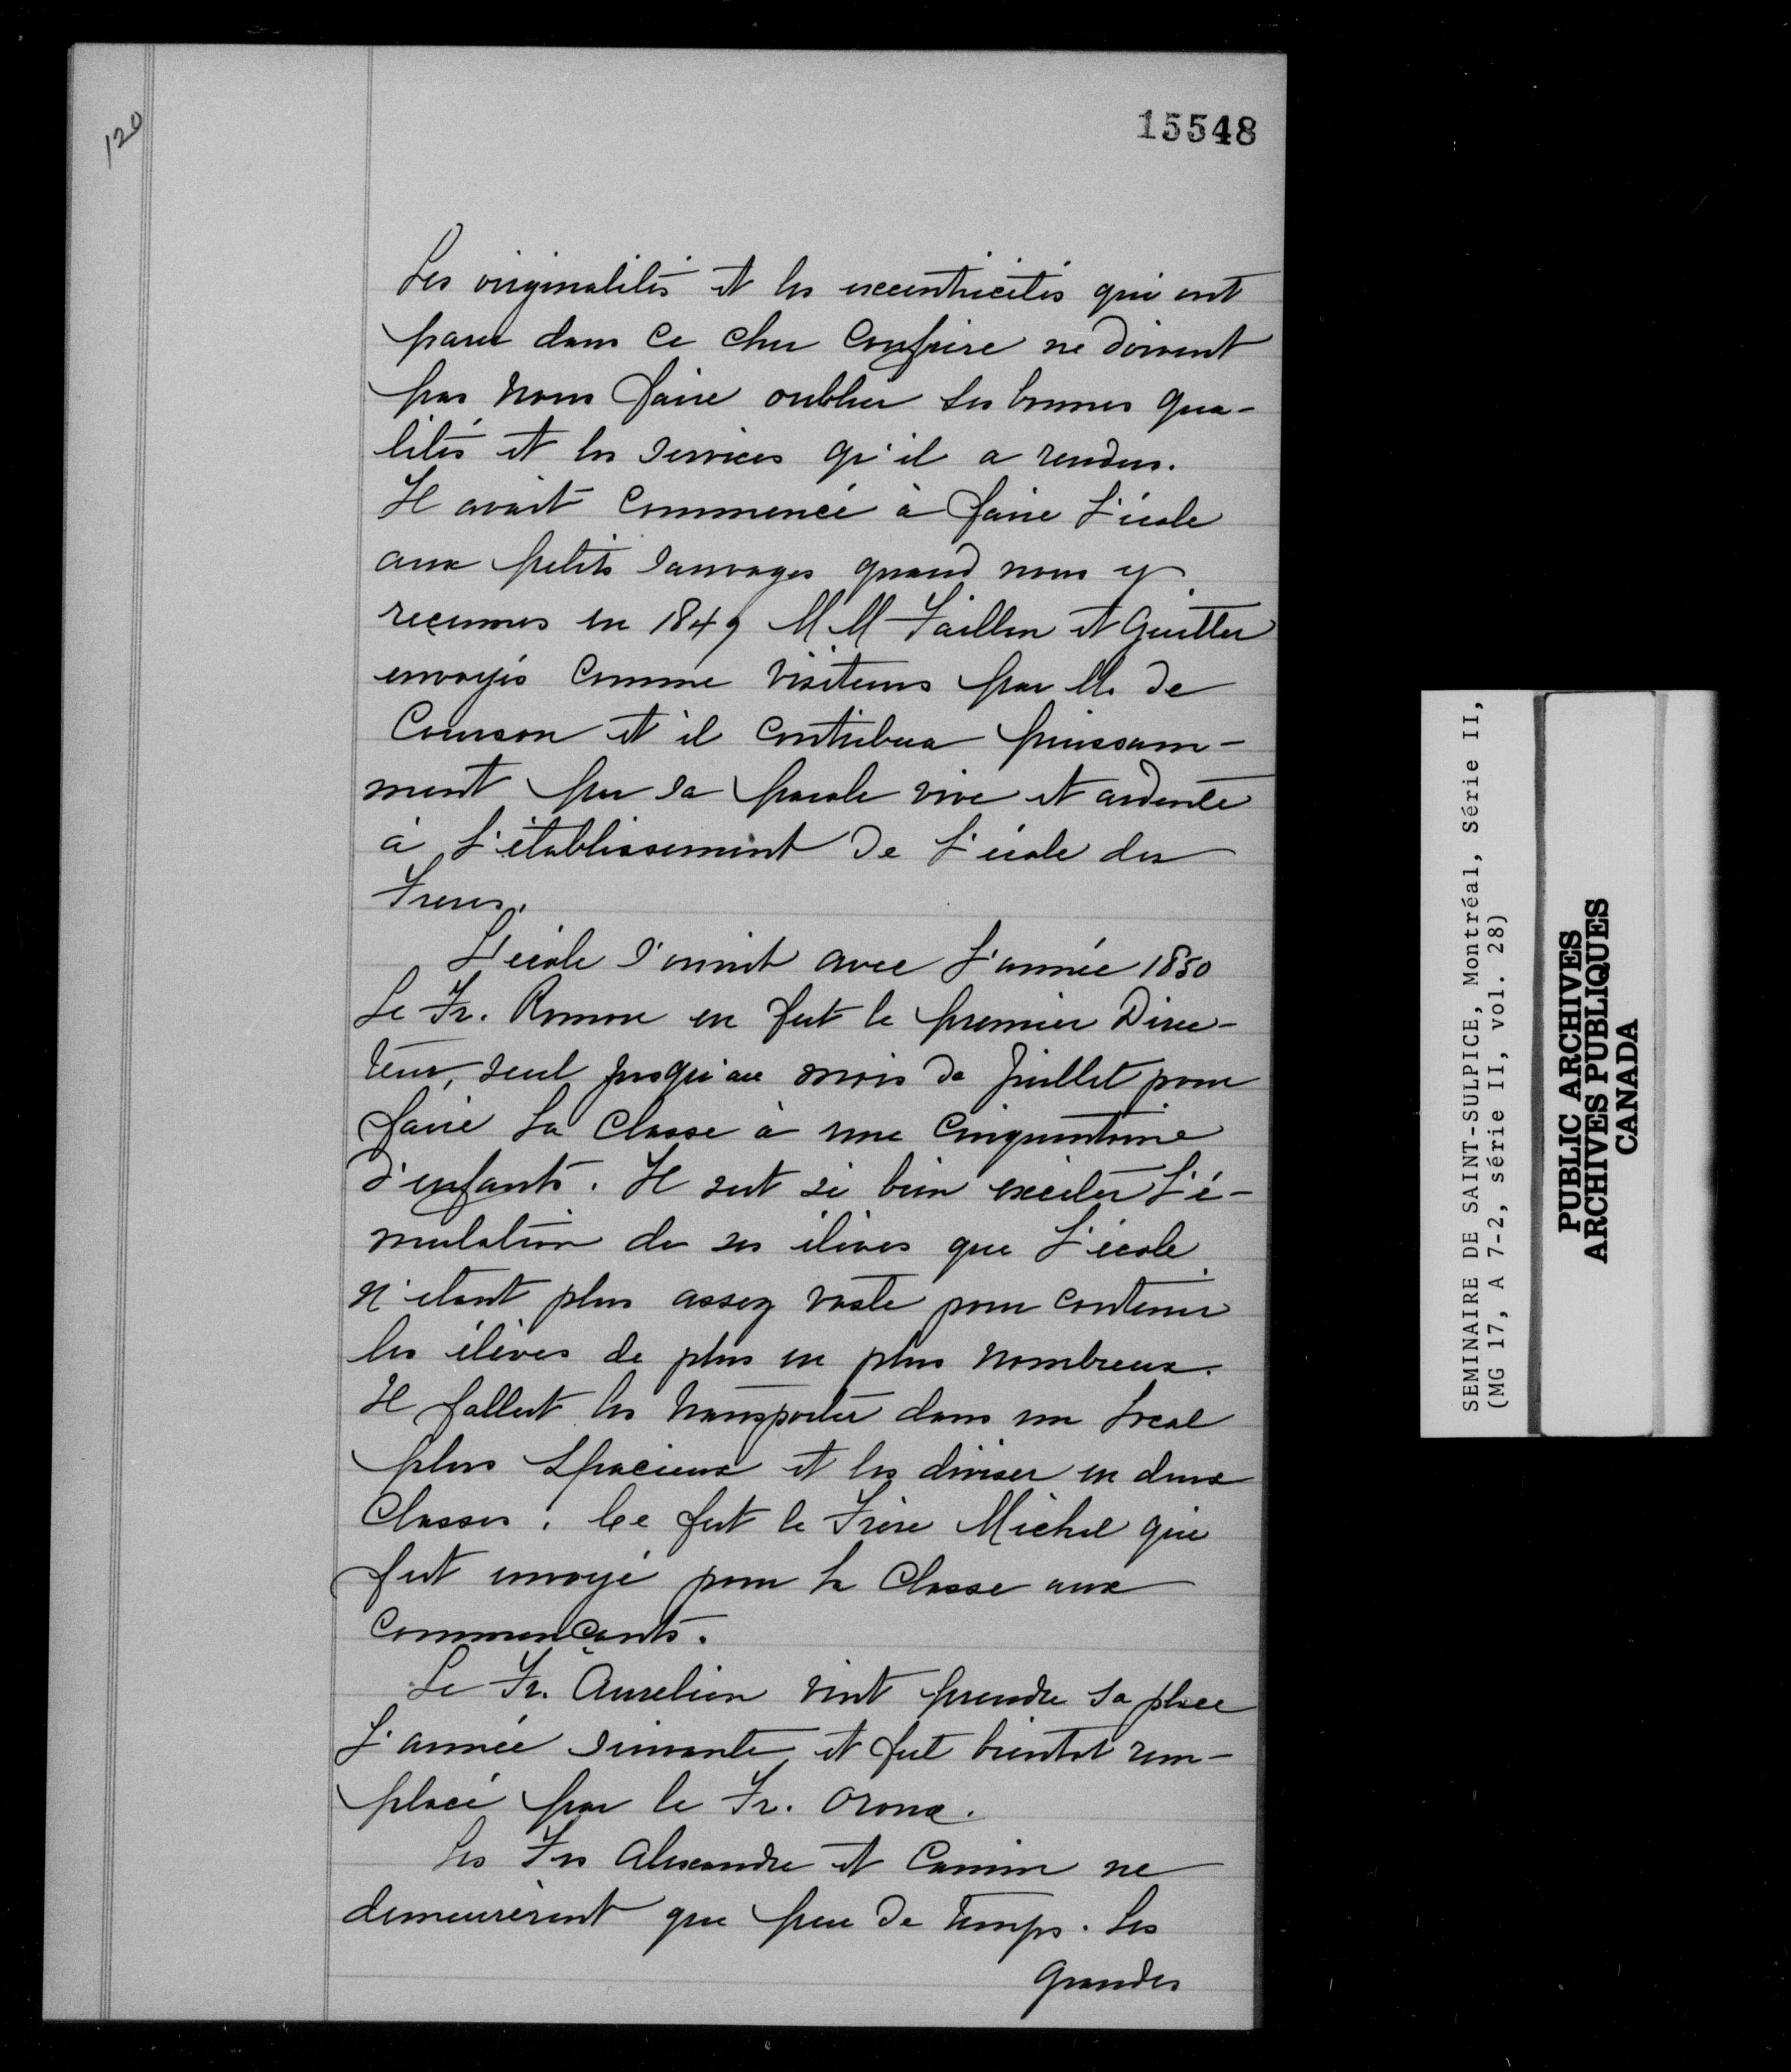 120
15548
Les originalités et les excentricités qui ont
paru dans ce cher Confrère ne doivent
pas nous faire oublier ses bonnes qua-
lités et les services qu'il a rendus.
Il avait commencé à faire l'école
aux petits sauvages quand nous y
reçumes en 1849 MM Faillon et Guitter
envoyés comme visiteurs par M. de
Courson et il contribua puissam-
ment par sa parole vive et ardente
à l'établissement de l'école des
Freres.
L'école s'ouvrit avec l'année 1850
Le Fr. Romon en fut le premier Direc-
teur, seul jusqu'au mois de Juillet pour
faire la classe à une cinquantaine
d'enfants. Il sut si bien exciter l'é-
mulation de ses élèves que l'école
n'étant plus assez vaste pour contenir
les élèves de plus en plus nombreux.
Il fallut les transporter dans un local
plus spacieux et les diviser en deux
Classes. Ce fut le Frère Michel qui
fut envoyé pour la Classe aux
Commençants.
Le Fr. Aurelien vint prendre sa place
l'année suivante, et fut bientot rem-
placé par le Fr.
Les Frs Alexandre et ne
demeurèrent que peu de temps. Les
grandes
SEMINAIRE DE SAINT-SULPICE, Montréal, Série II,
(MG 17, A 7-2, série II, vol. 28)
PUBLIC ARCHIVES
ARCHIVES PUBLIQUES
CANADA